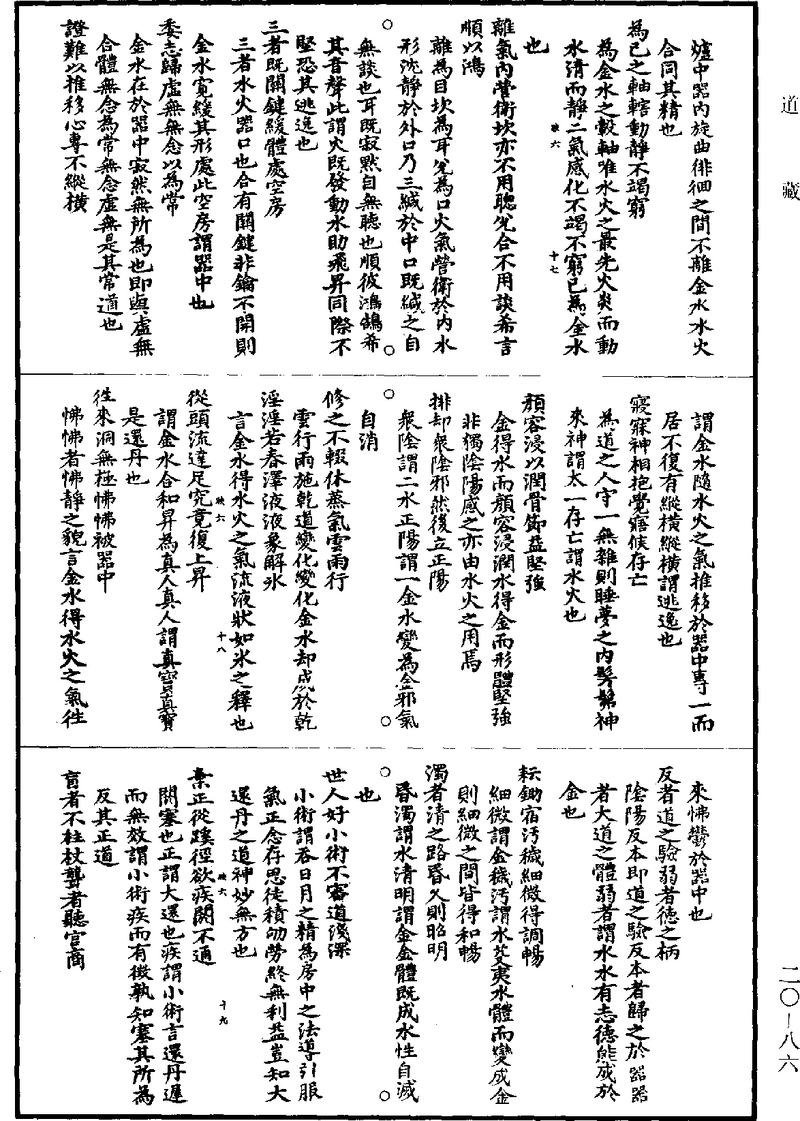 道藏
爐中器內旋曲徘徊之間不離金水水火
合同其精也
為己之軸轄動靜不竭窮
為金水之轂軸唯水火之最先火炎而動
水清而靜二氣感化不竭不窮已為金水
映六 十七
也
離氣內營衛坎亦不用聰兌合不用談希言
順以鴻
離為目坎為耳兌為口火氣營衛於內水
形沈靜於外口乃三緘於中口既緘之自
無談也耳既寂默自無聽也順彼鴻鵠希
其音聲此謂火既發動水助飛昇同際不
堅恐其逃逸也
三者既關鍵緩體處空房
三者水火器口也合有關鍵非鑰不開則
金水寬緩其形處此空房謂器中也
委志歸虛無無念以為常
金水在於器中寂然無所為也即與虛無
合體無念為常無念虛無是其常道也
證難以推移心專不縱橫
謂金水隨水火之氣推移於器中專一而
居不復有縱橫縱橫謂逃逸也
寢寐神相抱覺寤候存亡
為道之人守一無雜則睡夢之內髣髴神
來神謂太一存亡謂水火也
顏容浸以潤骨節益堅強
金得水而顏容浸潤水得金而形體堅強
非獨陰陽感之亦由水火之用焉
排却衆陰邪然後立正陽
衆陰謂二水正陽謂一金水變為金邪氣
自消
修之不輟休蒸氣雲雨行
雲行雨施乾道變化變化金水却成於乾
淫淫若春澤液液象解氷
言金水得水火之氣流液狀如氷之釋也
映六 十八
從頭流達足究竟復上昇
謂金水合和昇為真人真人謂真寶真寶
是還丹也
往來洞無極怫怫被器中
怫怫者怫靜之貌言金水得水火之氣往
來怫鬱於器中也
反者道之驗弱者德之柄
陰陽反本即道之驗反本者歸之於器器
者大道之體弱者謂水水有志德能成於
金也
耘鋤宿汚穢細微得調暢
細微謂金穢汚謂水芟夷水體而變成金
則細微之間皆得和暢
濁者清之路昏久則昭明
昏濁謂水清明謂金金體既成水性自滅
也
世人好小術不審道淺深
小術謂吞日月之精為房中之法導引服
氣正念存思徒積劬勞終無利益豈知大
還丹之道神妙無方也
映六 十九
棄正從蹊徑欲疾閼不通
閼塞也正謂大還也疾謂小術言還丹遲
而無效謂小術疾而有徵孰知塞其所為
反其正道
盲者不柱杖聾者聽宮商
二〇-八六